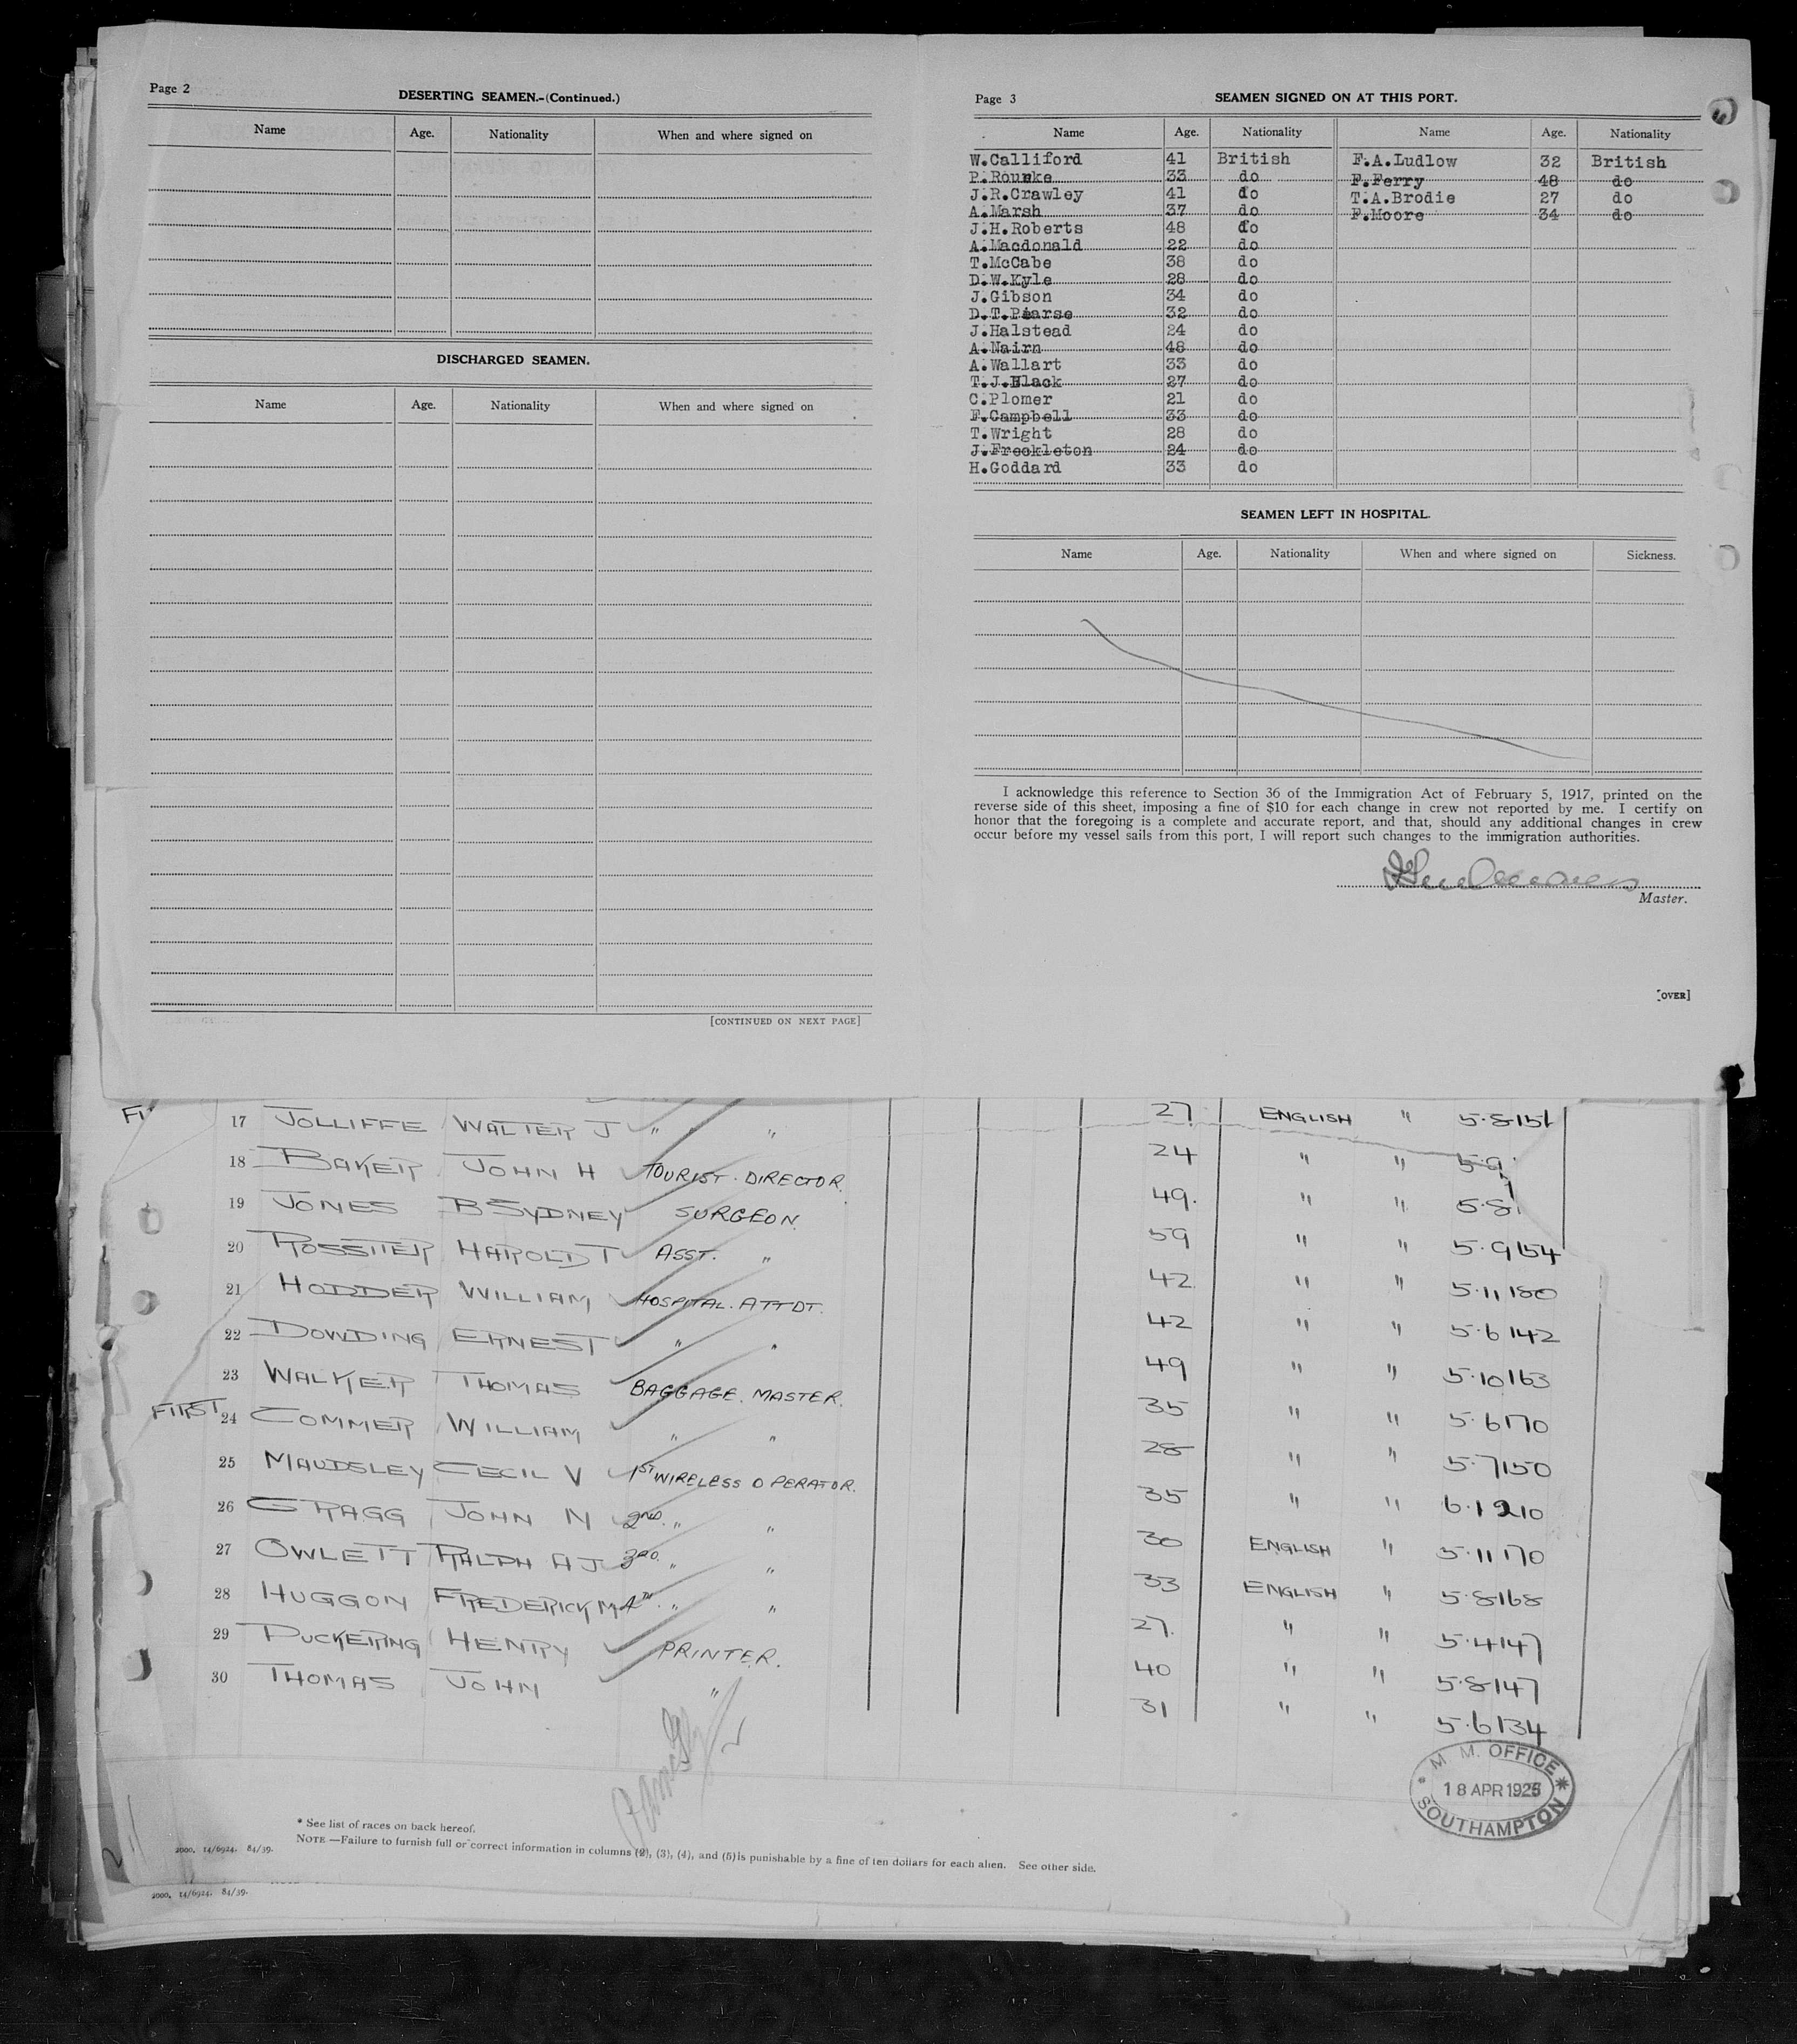 Page 2
DESERTING SEAMEN.-(Continued.)
Name Age. Nationality When and where signed on
DISCHARGED SEAMEN.
Name Age. Nationality When and where signed on
[CONTINUED ON NEXT PAGE]
Page 3
SEAMEN SIGNED ON AT THIS PORT.
Name Age. Nationality Name Age. Nationality
W.Calliford 41 British F.A.Ludlow 32 British
P.Rourke 33 do F.Ferry 48 do
J.R.Crawley 41 do T.A.Brodie 27 do
A.Marsh 37 do F.Moore 34 do
J.H.Roberts 48 do
A.Macdonald 22 do
T.McCabe 38 do
D.W.Kyle 28 do
J.Gibson 34 do
D.T.Pearse 32 do
J.Halstead 24 do
A.Nairn 48 do
A.Wallart 33 do
T.J.Black 27 do
C.Plomer 21 do
F.Campbell 33 do
T.Wright 28 do
J.Freckleton 24 do
H.Goddard 33 do
SEAMEN LEFT IN HOSPITAL.
Name Age. Nationality When and where signed on Sickness.
I acknowledge this reference to Section 36 of the Immigration Act of February 5, 1917, printed on the
reverse side of this sheet, imposing a fine of $10 for each change in crew not reported by me. I certify on
honor that the foregoing is a complete and accurate report, and that, should any additional changes in crew
occur before my vessel sails from this port, I will report such changes to the immigration authorities.
Master.
[OVER]
17 JOLLIFFE WALTER J " " 27 ENGLISH " 5.8 151
18 BAKER JOHN H TOURIST. DIRECTOR. 24 " " 5.9
19 JONES B SYDNEY SURGEON. 49. " " 5.8
20 ROSSITER HAROLD T ASST. " 59 " " 5.9 154
21 HODDER WILLIAM HOSPITAL. ATTDT. 42 " " 5.11 180
22 DOWDING ERNEST " " 42 " " 5.6 142
23 WALKER THOMAS BAGGAGE. MASTER. 49 " " 5.10 163
FIRST 24 COMMER WILLIAM " " 35 " " 5.6 170
25 MAUDSLEY CECIL V 1ST WIRELESS OPERATOR. 28 " " 5.7 150
26 GRAGG JOHN N 2ND. " " 35 " " 6.1 210
27 OWLETT RALPH A J 3RD. " " 30 ENGLISH " 5.11 170
28 HUGGON FREDERICK M 4TH. " " 33 ENGLISH " 5.8 168
29 PUCKERING HENRY PRINTER. 27. " " 5.4 147
30 THOMAS JOHN " 40 " " 5.8 147
31 " " 5.6 134
M. M. OFFICE
18 APR 1925
SOUTHAMPTON
* See list of races on back hereof.
NOTE—Failure to furnish full or correct information in columns (2), (3), (4), and (5) is punishable by a fine of ten dollars for each alien. See other side.
2000. 14/6924. 84/39.
2000. 14/6924. 84/39.